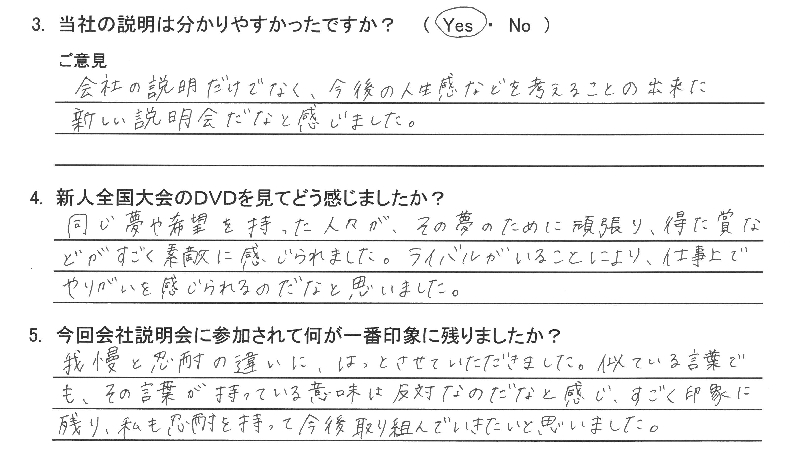 3. 当社の説明は分かりやすかったですか？ （ Yes ・ No ）
ご意見
会社の説明だけでなく、今後の人生感などを考えることの出来た
新しい説明会だなと感じました。
4. 新人全国大会のDVDを見てどう感じましたか？
同じ夢や希望を持った人々が、その夢のために頑張り、得た賞な
どがすごく素敵に感じられました。ライバルがいることにより、仕事上で
やりがいを感じられるのだなと思いました。
5. 今回会社説明会に参加されて何が一番印象に残りましたか？
我慢と忍耐の違いに、はっとさせていただきました。似ている言葉で
も、その言葉が持っている意味は反対なのだなと感じ、すごく印象に
残り、私も忍耐を持って今後取り組んでいきたいと思いました。